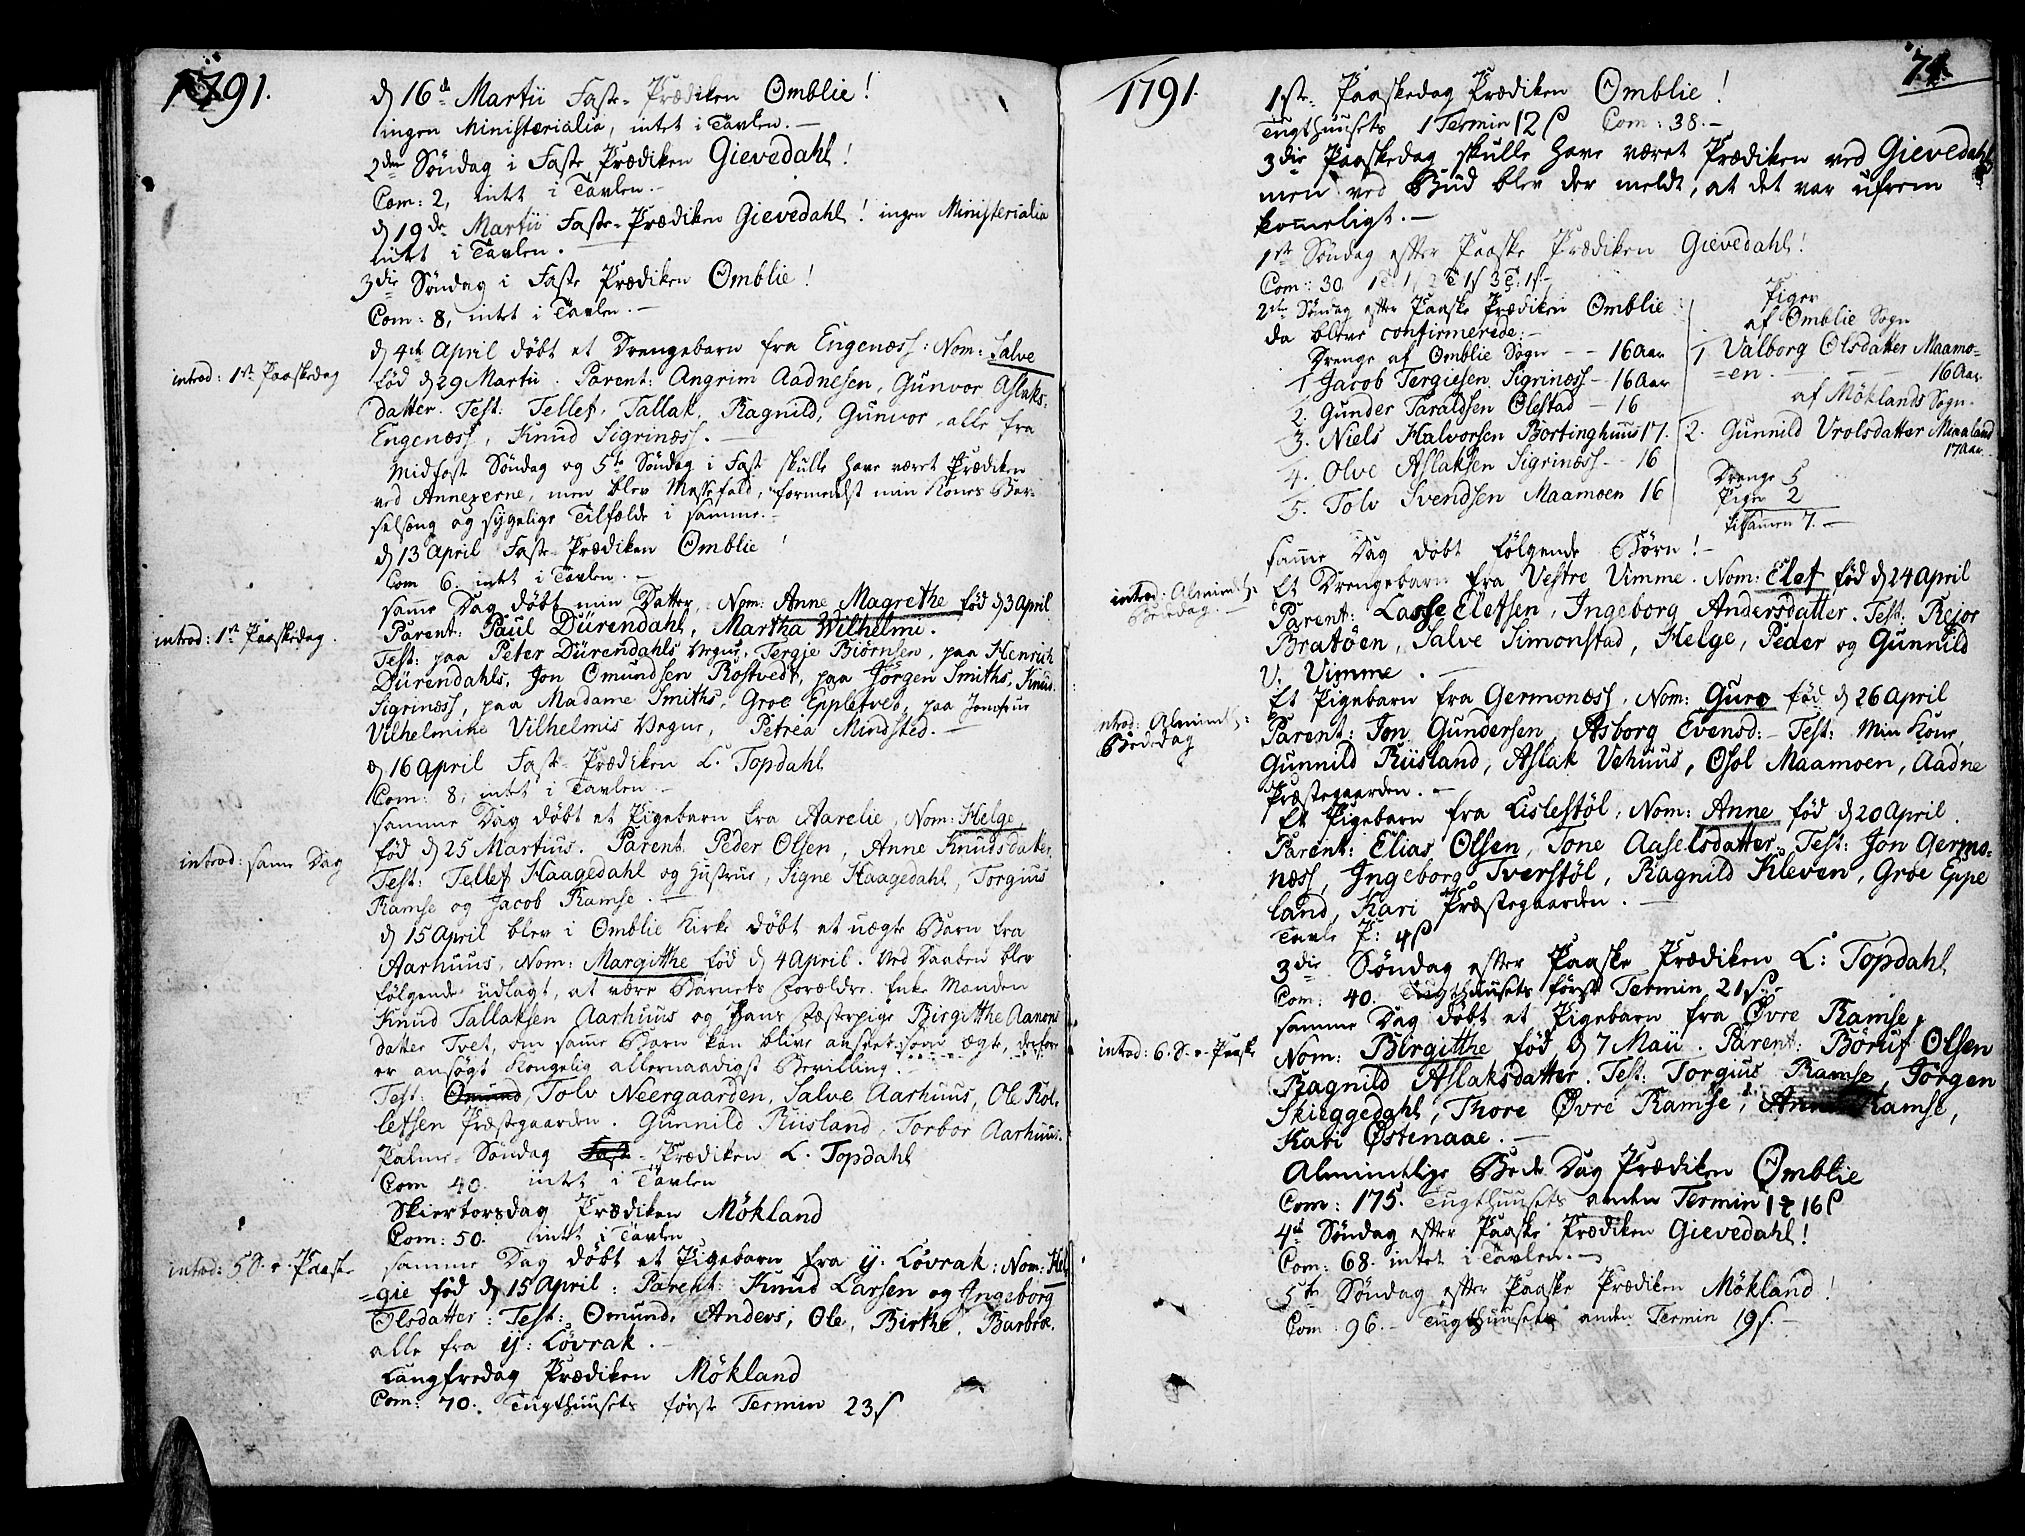 1791.
d 16de Martii Faste-Prædiken Omblie!
ingen Ministerialia, intet i Tavlen.-
2den Søndag i Faste Prædiken Gievedahl!
Com: 2, intet i Tavlen.-
d 19de Martii Faste-Prædiken Gievedahl! ingen Ministerialia
intet i Tavlen.
3die Søndag i Faste Prædiken Omblie!
Com: 8, intet i Tavlen.-
d 4de April døbt et Drengebarn fra Engenæss: Nom: Salve
introd: 1ste Paaskedag
fød d 29 Martii. Parent: Angrim Aadnesen, Gunvor Aslaks-
datter. Test: Tellef, Tallak, Ragnild, Gunvor, alle fra
Engenæss, Knud Sigrinæss.-
Midfast Søndag og 5te Søndag i Fast skulle have været Prædiken
ved Annexerne, men blev Messefald, formedelst min Kones Bar-
selseng og sygelige Tilfælde i samme.-
d 13 April Faste-Prædiken Omblie!
Com 6. intet i Tavlen.-
samme Dag døbt min Datter, Nom: Anne Magrethe fød d 3 April
introd: 1ste Paaskedag.
Parent: Paul Dürendahl, Martha Wilhelmi.
Test: paa Peter Dürendahls Vegne, Tergje Biørnsen, paa Henrich
Dürendahls, Jon Omundsen Rostvedt, paa Jørgen Smiths, Knud
Sigrinæss, paa Madame Smiths, Groe Eppletvet, paa Jomfrue
Vilhelmine Vilhelmis Vegne, Petrea Mindsted.-
d 16 April Fast-Prædiken L. Topdahl
Com: 8, intet i Tavlen.-
samme Dag døbt et Pigebarn fra Aarelie, Nom: Helge,
fød d 25 Martius. Parent. Peder Olsen, Anne Knudsdatter.
introd: same Dag
Test: Tellef Haagedahl og Hustrue, Signe Haagedahl, Torgius
Ramse og Jacob Ramse.-
d 15 April blev i Omblie Kirke døbt et uægte Barn fra
Aarhuus, Nom: Margitthe fød d 4 April. Ved Daaben blev
følgende udlagt, at være Barnets Forældre. Enke Manden
Knud Tallaksen Aarhuus og Hans Fæstepige Birgitthe Aanons
datter Tvet, om same Barn kan blive anseet som ægte, derfore
er ansøgt Kongelig allernaadigst Bevilling.-
Test: Omund, Tolv Neergaarden, Salve Aarhuus, Ole Rol-
lefsen Præstegaarden. Gunnild Riisland, Torbor Aarhuus.
Palme-Søndag Fast-Prædiken L. Topdahl
Com 40. intet i Tavlen
Skiertorsdag Prædiken Møkland
Com: 50. intet i Tavlen
samme Dag døbt et Pigebarn fra y: Løvrak: Nom: Hel
introd: 5 S. e. Paaske
=gie fød d 15 April: Parent: Knud Larsen og Ingeborg
Olsdatter: Test: Omund, Anders, Ole, Birthe, Barbroe.
alle fra y: Løvrak.-
Langfredag Prædiken Møkland
Com: 70. Tugthuusets første Termin 23 s
1791.
74
1ste Paaskedag Prædiken Omblie!
Tugthuusets 1 Termin 12 s Com: 38.-
3die Paaskedag skulle have været Prædiken ved Gievedahl
men ved Bud blev der meldt, at det var ufrem
kommeligt.-
1ste Søndag efter Paaske Prædiken Gievedahl!
Com: 30.
2den Søndag efter Paaske Prædiken Omblie
da bleve confirmerede.-
Drenge af Omblie Sogn -- 16 Aar
1 Jacob Tergiesen Sigrinæss - 16 Aar
2. Gunder Taraldsen Ølestad - 16
3. Niels Halvorsen Bortinghuus 17.
4. Olve Aslaksen Sigrinæss - 16
5. Tolv Svendsen Maamoen 16
Piger
af Omblie Sogn
1. Valborg Olsdatter Maamo-
=en. 16 Aar.
af Møklands Sogn.
2. Gunnild Vrolsdatter Miaaland
17 Aar.
Drenge 5
Piger 2
tilsamen 7.-
samme Dag døbt følgende Børn!-
Et Drengebarn fra Vestre Vimme. Nom: Elef fød d 24 April
introd: Almindl:
Bededag.-
Parent: Lasse Elefsen, Ingeborg Andersdatter. Test: Rejor
Bratøen, Salve Simonstad, Helge, Peder og Gunnild
V. Vimme.-
Et Pigebarn fra Germonæss, Nom: Guro fød d 26 April
introd: Almindl:
Bededag
Parent: Jon Gundersen, Asborg Evensd:- Test: Min Kone,
Gunnild Riisland, Aslak Vehuus, Osol Maamoen, Aadne
Præstegaarden.-
Et Pigebarn fra Lislestøl, Nom: Anne fød d 20 April.
Parent: Elias Olsen, Tone Aaselsdatter. Test: Jon Germo-
næss, Ingeborg Tverstøl, Ragnild Kleven, Groe Eppe
land, Kari Præstegaarden.-
Tavle P: 4 s
3die Søndag efter Paaske Prædiken L: Topdahl
Com: 40. Tugthuusets første Termin 21 s.-
samme Dag døbt et Pigebarn fra Øvre Ramse,
introd: 6. S. e. Paaske
Nom: Birgitthe fød d 7 Maii. Parent: Børuf Olsen
Ragnild Aslaksdatter. Test: Torgius Ramse, Jørgen
Skieggedahl, Thore Øvre Ramse, Anne Ramse,
Kari Østenaae.-
Almindelige Bede Dag Prædiken Omblie
Com: 175. Tugthuusets anden Termin 1 t 16 s
4de Søndag efter Paaske Prædiken Gievedahl!
Com: 68. intet i Tavlen.-
5te Søndag efter Paaske Prædiken Møkland!
Com: 96.- Tugthuusets anden Termin 19 s.-